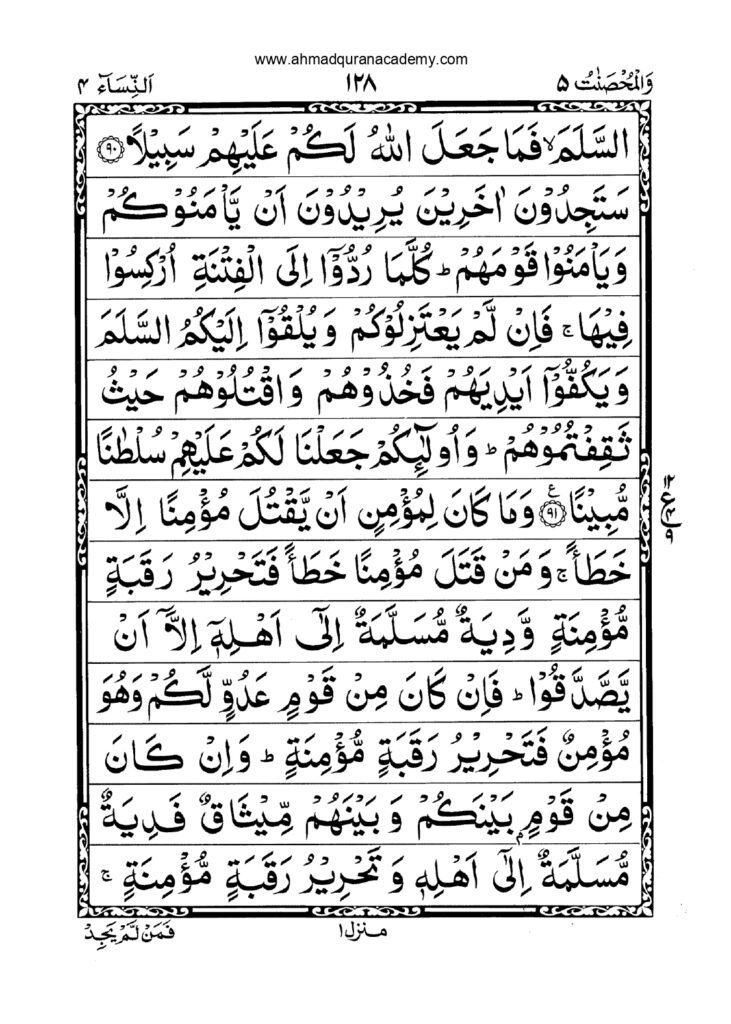 www.ahmadquranacademy.com
وَالْمُحْصَنٰتُ ۵ ١٢٨ اَلنِّسَآء ۴
السَّلَمَ ۙ فَمَا جَعَلَ اللّٰهُ لَكُمْ عَلَيْهِمْ سَبِيْلًا ﴿۹۰﴾
سَتَجِدُوْنَ اٰخَرِيْنَ يُرِيْدُوْنَ اَنْ يَّاْمَنُوْكُمْ
وَيَاْمَنُوْا قَوْمَهُمْ ؕ كُلَّمَا رُدُّوْۤا اِلَى الْفِتْنَةِ اُرْكِسُوْا
فِيْهَا ۚ فَاِنْ لَّمْ يَعْتَزِلُوْكُمْ وَيُلْقُوْۤا اِلَيْكُمُ السَّلَمَ
وَيَكُفُّوْۤا اَيْدِيَهُمْ فَخُذُوْهُمْ وَاقْتُلُوْهُمْ حَيْثُ
ثَقِفْتُمُوْهُمْ ؕ وَاُولٰٓئِكُمْ جَعَلْنَا لَكُمْ عَلَيْهِمْ سُلْطٰنًا
مُّبِيْنًا ﴿۹۱﴾ ع وَمَا كَانَ لِمُؤْمِنٍ اَنْ يَّقْتُلَ مُؤْمِنًا اِلَّا
١٢ ع ۴ ۹
خَطَـًٔا ۚ وَمَنْ قَتَلَ مُؤْمِنًا خَطَـًٔا فَتَحْرِيْرُ رَقَبَةٍ
مُّؤْمِنَةٍ وَّدِيَةٌ مُّسَلَّمَةٌ اِلٰٓى اَهْلِهٖۤ اِلَّاۤ اَنْ
يَّصَّدَّقُوْا ؕ فَاِنْ كَانَ مِنْ قَوْمٍ عَدُوٍّ لَّكُمْ وَهُوَ
مُؤْمِنٌ فَتَحْرِيْرُ رَقَبَةٍ مُّؤْمِنَةٍ ؕ وَاِنْ كَانَ
مِنْ قَوْمٍۭ بَيْنَكُمْ وَبَيْنَهُمْ مِّيْثَاقٌ فَدِيَةٌ
مُّسَلَّمَةٌ اِلٰٓى اَهْلِهٖ وَتَحْرِيْرُ رَقَبَةٍ مُّؤْمِنَةٍ ۚ
منزل ١
فَمَنْ لَّمْ يَجِدْ